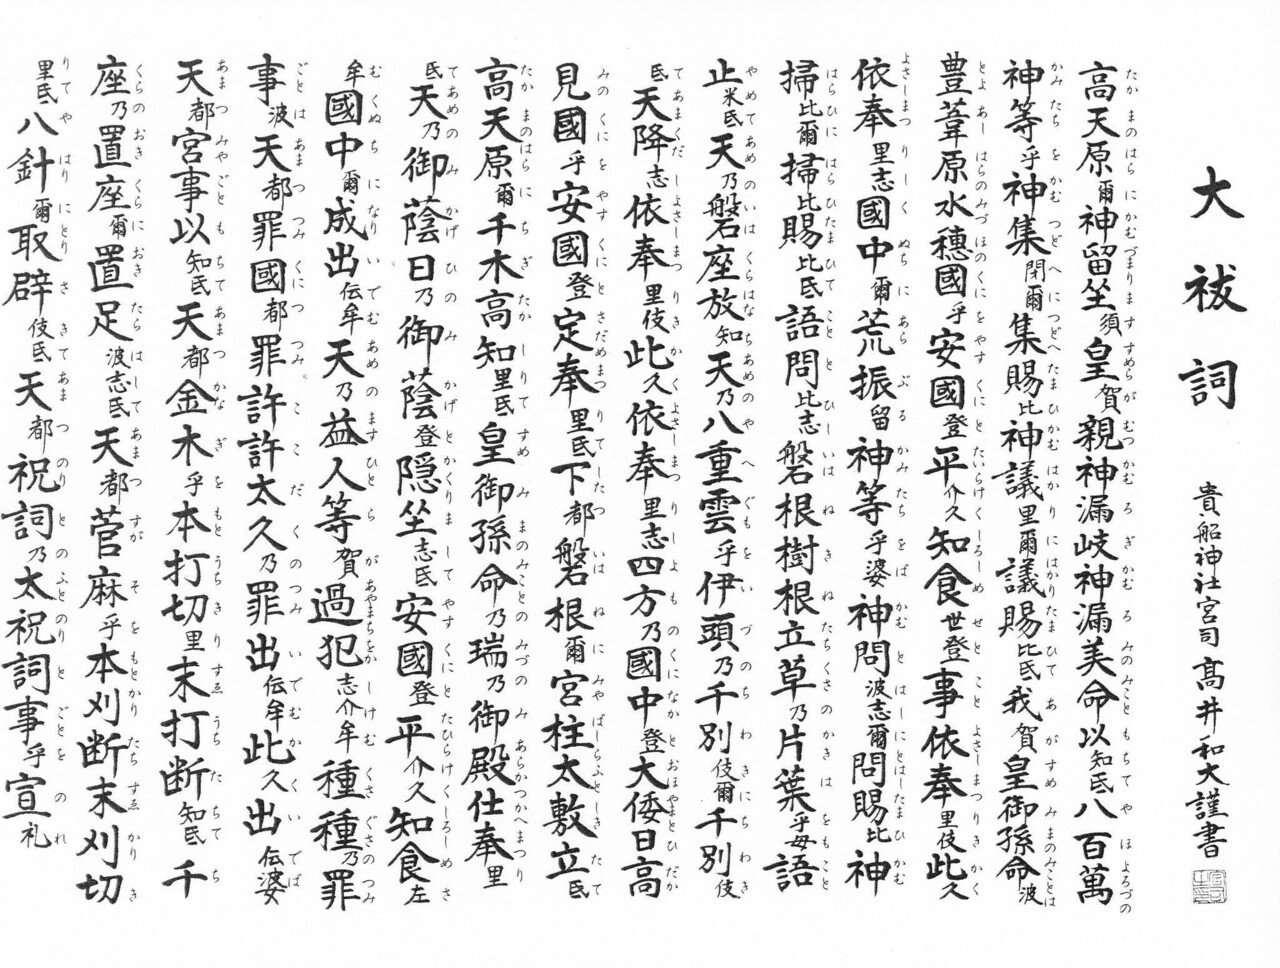 大祓詞
貴船神社宮司髙井和大謹書
高天原爾神留坐須皇賀親神漏岐神漏美命以知氐八百萬
神等乎神集閉爾集賜比神議里爾議賜比氐我賀皇御孫命波
豊葦原水穗國乎安國登平介久知食世登事依奉里伎此久
依奉里志國中爾荒振留神等乎婆神問波志爾問賜比神
掃比爾掃比賜比氐語問比志磐根樹根立草乃片葉乎母語
止米氐天乃磐座放知天乃八重雲乎伊頭乃千別伎爾千別伎
氐天降志依奉里伎此久依奉里志四方乃國中登大倭日高
見國乎安國登定奉里氐下都磐根爾宮柱太敷立氐
高天原爾千木高知里氐皇御孫命乃瑞乃御殿仕奉里
氐天乃御蔭日乃御蔭登隠坐志氐安國登平介久知食左
牟國中爾成出伝牟天乃益人等賀過犯志介牟種種乃罪
事波天都罪國都罪許許太久乃罪出伝牟此久出伝婆
天都宮事以知氐天都金木乎本打切里末打断知氐千
座乃置座爾置足波志氐天都菅麻乎本刈断末刈切
里氐八針爾取辟伎氐天都祝詞乃太祝詞事乎宣礼